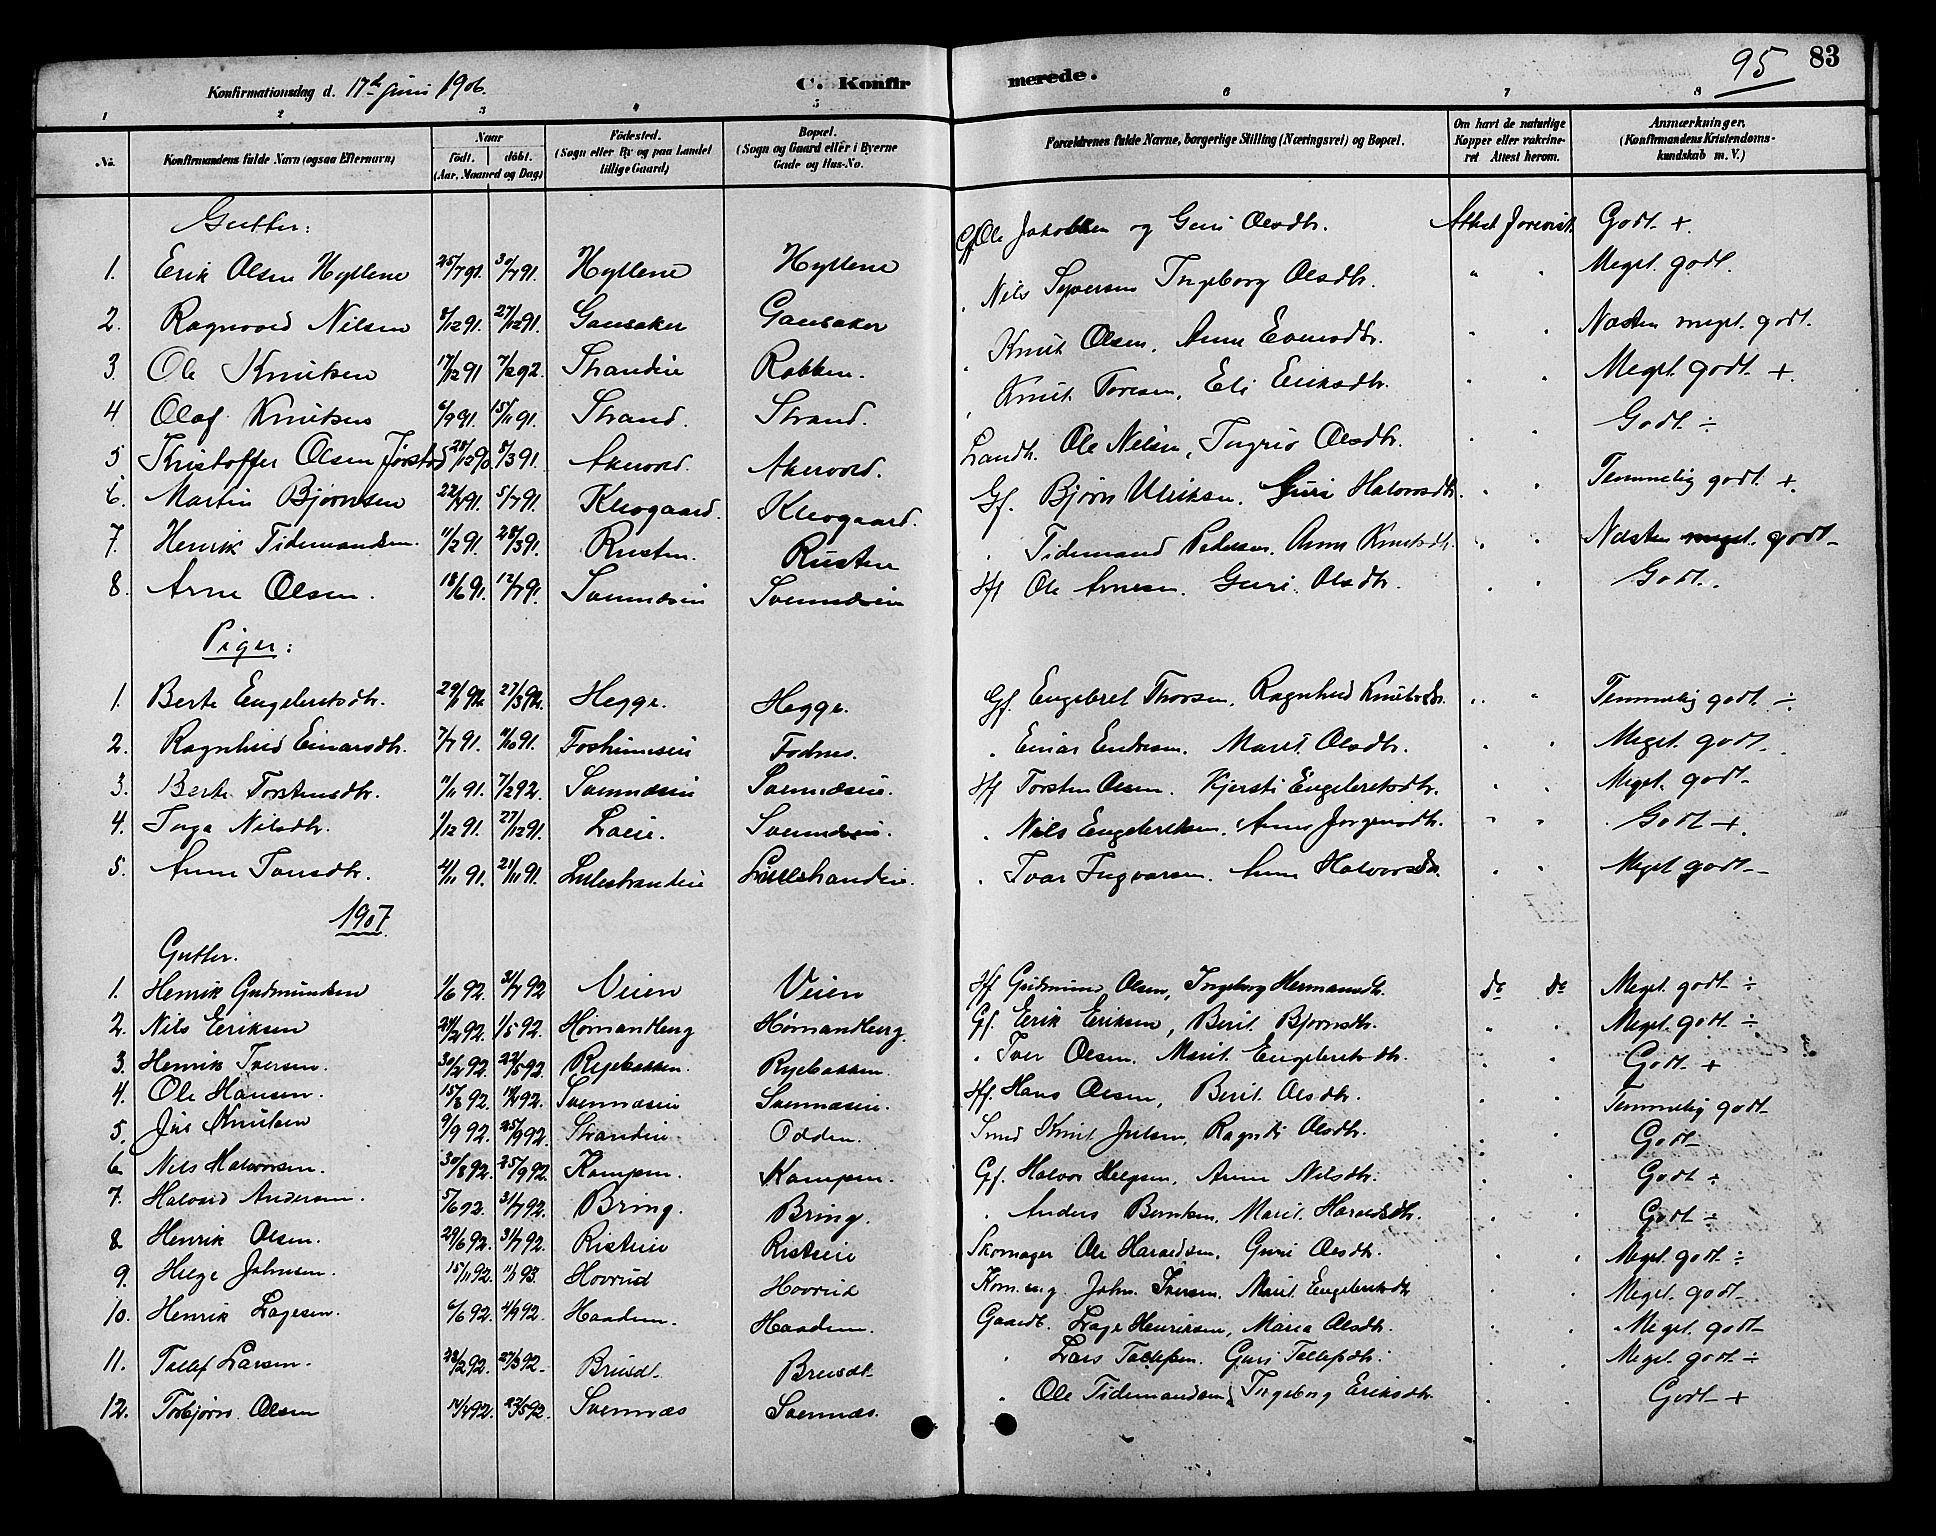 95 83
Konfirmationsdag d. 17de juni 1906. C. Konfirmerede.
1 2 3 4 5 6 7 8
No. Konfirmandens fulde Navn (ogsaa Efternavn) Naar födt. döbt. (Aar, Maaned og Dag) Födested. (Sogn eller By og paa Landet tillige Gaard) Bopæl. (Sogn og Gaard eller i Byerne Gade og Hus-No. Forældrenes fulde Navne, borgerlige Stilling (Næringsvei) og Bopæl. Om havt de naturlige Kopper eller vakcineret Attest herom. Anmærkninger. (Konfirmandens Kristendomskundskab m. V.)
Gutter:
1. Erik Olsen Hyllene 25/7 91. 30/7 91. Hyllene Hyllene Gf Ole Jakobsen og Guri Olsdtr. Attest forevist. Godt +
2. Ragnvald Nilsen 8/12 91. 27/12 91. Gausaker Gausaker " Nils Syversen Ingeborg Olsdtr. " " Meget godt.
3. Ole Knutsen 17/12 91 7/2 92. Strandeie Robken. " Knut Olsen. Anne Evensdtr. " " Næsten meget godt.
4 Olaf Knutsen 6/9 91. 15/11 91. Strand. Strand. " Knut Toresen, Eli Eriksdtr. " " Meget godt +
5 Kristoffer Olsen Jørstad 28/12 90 8/3 91. Akervold. Akervold. Landh. Ole Nilsen, Ingrid Olsdtr. " " Godt ÷
6. Martin Bjørnsen 22/4 91. 5/7 91. Klevgaard. Klevgaard. Gf. Bjørn Ulriksen, Guri Halvorsdtr. " " Temmelig godt +
7. Henrik Tidemandsen. 11/2 91. 28/3 91. Rusten. Rusten " Tidemand Pedersen. Anne Knutsdtr. " " Næsten meget godt
8. Arne Olsen. 18/6 91. 12/7 91. Svennæseie Svennæseie Hf Ole Arnesen. Guri Olsdtr. " " Godt.
Piger:
1. Berte Engebretsdtr. 29/1 92. 27/3 92. Hegge. Hegge. Gf. Engebret Thorsen, Ragnhild Knutsdtr. " " Temmelig godt ÷
2. Ragnhild Einarsdtr. 7/7 91. 4/10 91. Fodnes. " Einar Endresen. Marit Olsdtr. " " Meget godt
3. Berte Torstensdtr. 11/11 91. 7/2 92. Svennæseie Svennæseie. Hf Torsten Olsen. Kjersti Engebretsdtr. " " Meget godt
4. Inga Nilsdtr. 1/12 91. 27/12 91. Loeie. Svennæseie. " Nils Engebretsen. Anne Jørgensdtr. " " Godt +
5. Anne Ivarsdtr. 4/11 91. 21/11 91. Lillestrandeie Lillestrandeie. " Ivar Ingvarsen. Anne Halvorsdtr. " " Meget godt
1907
Gutter.
1. Henrik Gudmundsen 1/6 92. 31/7 92 Veien Veien Hf Gudmund Olsen, Ingeborg Hermansdtr. do do Meget godt ÷
2. Nils Eriksen 24/2 92. 1/5 92. Hømandberg Hømandberg. Gf. Erik Eriksen, Berit Bjørnsdtr. " " Meget godt ÷
3. Henrik Iversen. 30/4 92. 22/5 92. Ryebakken. Ryebakken. " Iver Olsen. Marit Engebretsdtr. " " Godt +
4. Ole Hansen. 15/6 92. Svennæseie Svennæseie. Hf. Hans Olsen, Berit Olsdtr. " " Temmelig godt
5. Jul Knutsen 9/9 92. 25/9 92. Strandeie Odden. Smed Knut Julsen, Ragndi Olsdtr. " " Godt
6. Nils Halvorsen. 30/8 92. 25/9 92. Kampen. Kampen. Gf. Halvor Helgesen, Anne Nilsdtr. " " Godt ÷
7. Halvard Andersen. 5/6 92. 31/7 92. Bring. Bring. " Anders Berntsen. Marit Haraldsdtr. " " Godt ÷
8. Henrik Olsen. 29/6 92. 31/7 92. Risteie Risteie Skomager Ole Haraldsen, Guri Olsdtr. " " Meget godt ÷
9. Helge Johnsen. 15/11 92. 11/1 93. Hovrud Hovrud John Iversen. Marit Engebretsdtr " " Meget godt
10. Henrik Lagesen. 6/6 92. 4/9 92. Haadem. Haadem. Gaardbr. Lage Henriksen, Maria Olsdtr. " " Meget godt
11. Tollef Larsen. 28/2 92. 27/3 92. Breidt. Breidt. " Lars Tollefsen. Guri Tollefsdtr. " " Meget godt ÷
12. Torbjørn Olsen 14/4 92. 22/5 92. Svennæs Svennæs. " Ole Tidemandsen, Ingeborg Eriksdtr. " " Godt +